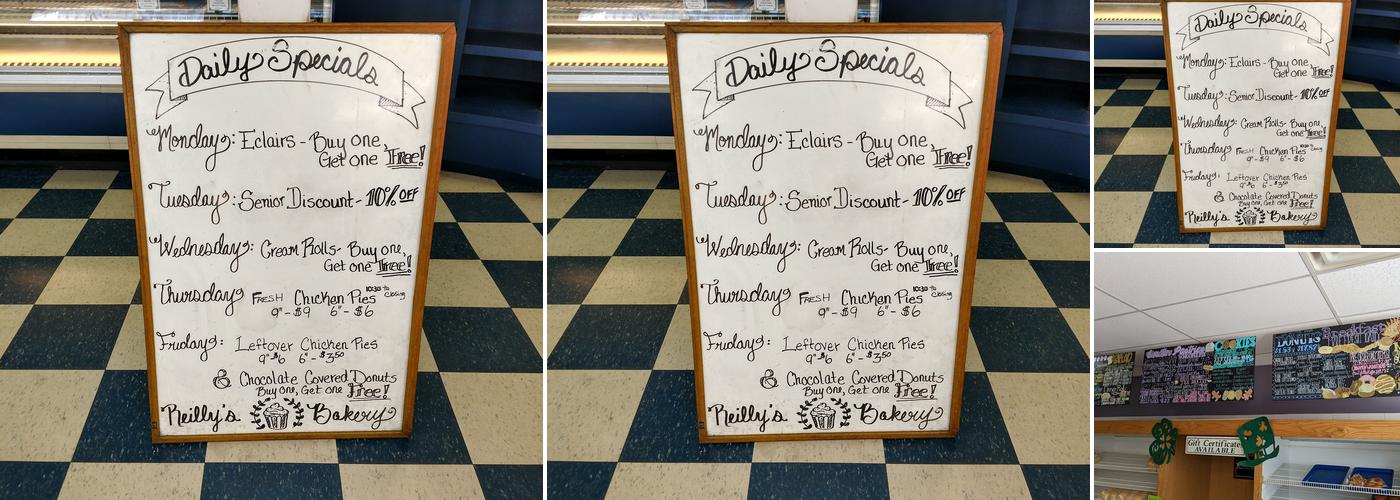 Daily Specials
Monday: Eclairs - Buy one,
Get one Free!
Tuesday: Senior Discount - 10% OFF
Wednesday: Cream Rolls - Buy one,
Get one Free!
Thursday FRESH Chicken Pies 10:30 to closing
9" - $9 6" - $6
Friday: Leftover Chicken Pies
9" $6 6" - $3.50
& Chocolate Covered Donuts
Buy one, Get one Free!
Reilly's Bakery
Daily Specials
Monday: Eclairs - Buy one,
Get one Free!
Tuesday: Senior Discount - 10% OFF
Wednesday: Cream Rolls - Buy one,
Get one Free!
Thursday FRESH Chicken Pies 10:30 to closing
9" - $9 6" - $6
Friday: Leftover Chicken Pies
9" $6 6" - $3.50
& Chocolate Covered Donuts
Buy one, Get one Free!
Reilly's Bakery
Daily Specials
Monday: Eclairs - Buy one,
Get one Free!
Tuesday: Senior Discount - 10% OFF
Wednesday: Cream Rolls - Buy one,
Get one Free!
Thursday FRESH Chicken Pies 10:30 to closing
9" - $9 6" - $6
Friday: Leftover Chicken Pies
9" $6 6" - $3.50
& Chocolate Covered Donuts
Buy one, Get one Free!
Reilly's Bakery
COOKIES
DONUTS
Breakfast
Gift Certificates
AVAILABLE